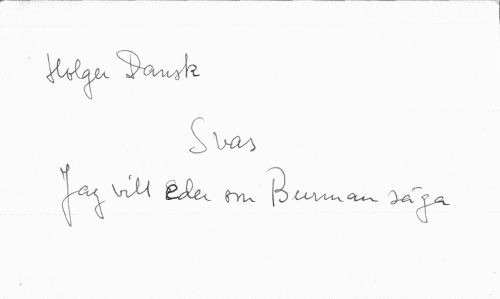 Holger Dansk
Svas
Jag vill eder om Burman säga